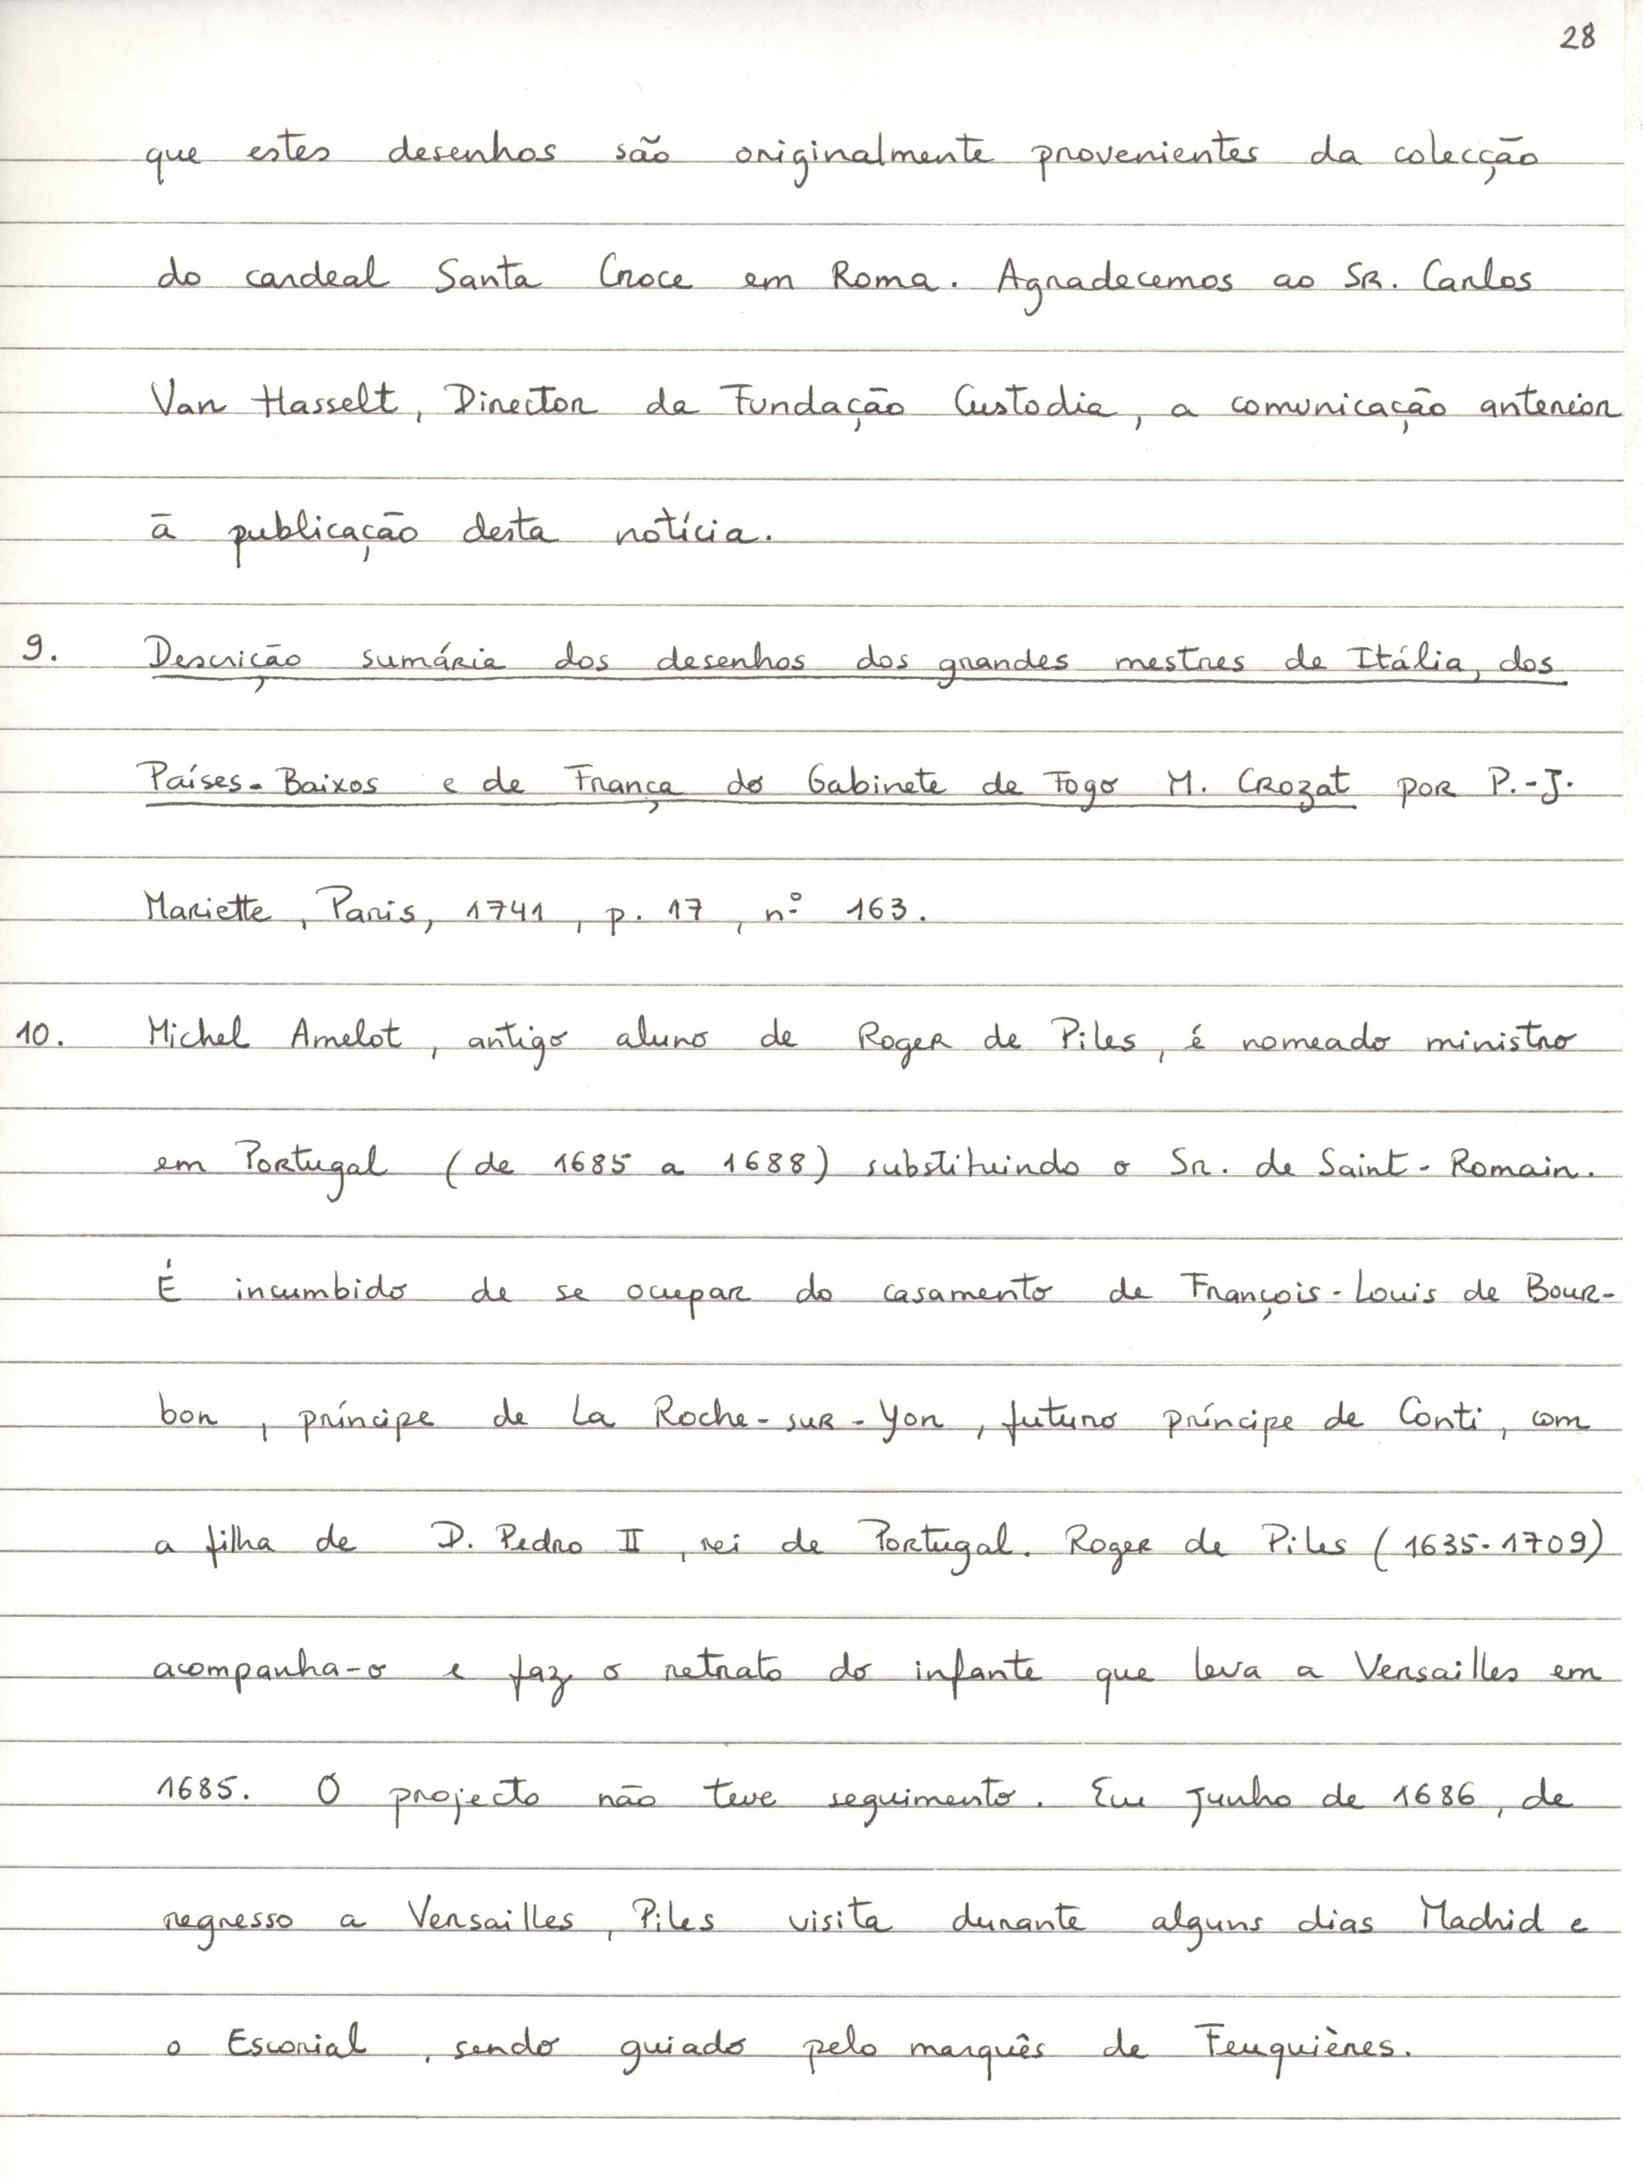 28
que estes desenhos são originalmente provenientes da colecção
do cardeal Santa Croce em Roma. Agradecemos ao SR. Carlos
Van Hasselt, Director da Fundação Custodia, a comunicação anterior
à publicação desta notícia.
9. Descrição sumária dos desenhos dos grandes mestres de Itália, dos
Países-Baixos e de França do Gabinete de Fogo M. Crozat por P.-J.
Mariette, Paris, 1741, p. 17, nº 163.
10. Michel Amelot, antigo aluno de Roger de Piles, é nomeado ministro
em Portugal (de 1685 a 1688) substituindo o Sr. de Saint-Romain.
É incumbido de se ocupar do casamento de François-Louis de Bour-
bon, príncipe de La Roche-sur-Yon, futuro príncipe de Conti, com
a filha de D. Pedro II, rei de Portugal. Roger de Piles (1635-1709)
acompanha-o e faz o retrato do infante que leva a Versailles em
1685. O projecto não teve seguimento. Em Junho de 1686, de
regresso a Versailles, Piles visita durante alguns dias Madrid e
o Escorial, sendo guiado pelo marquês de Feuquières.